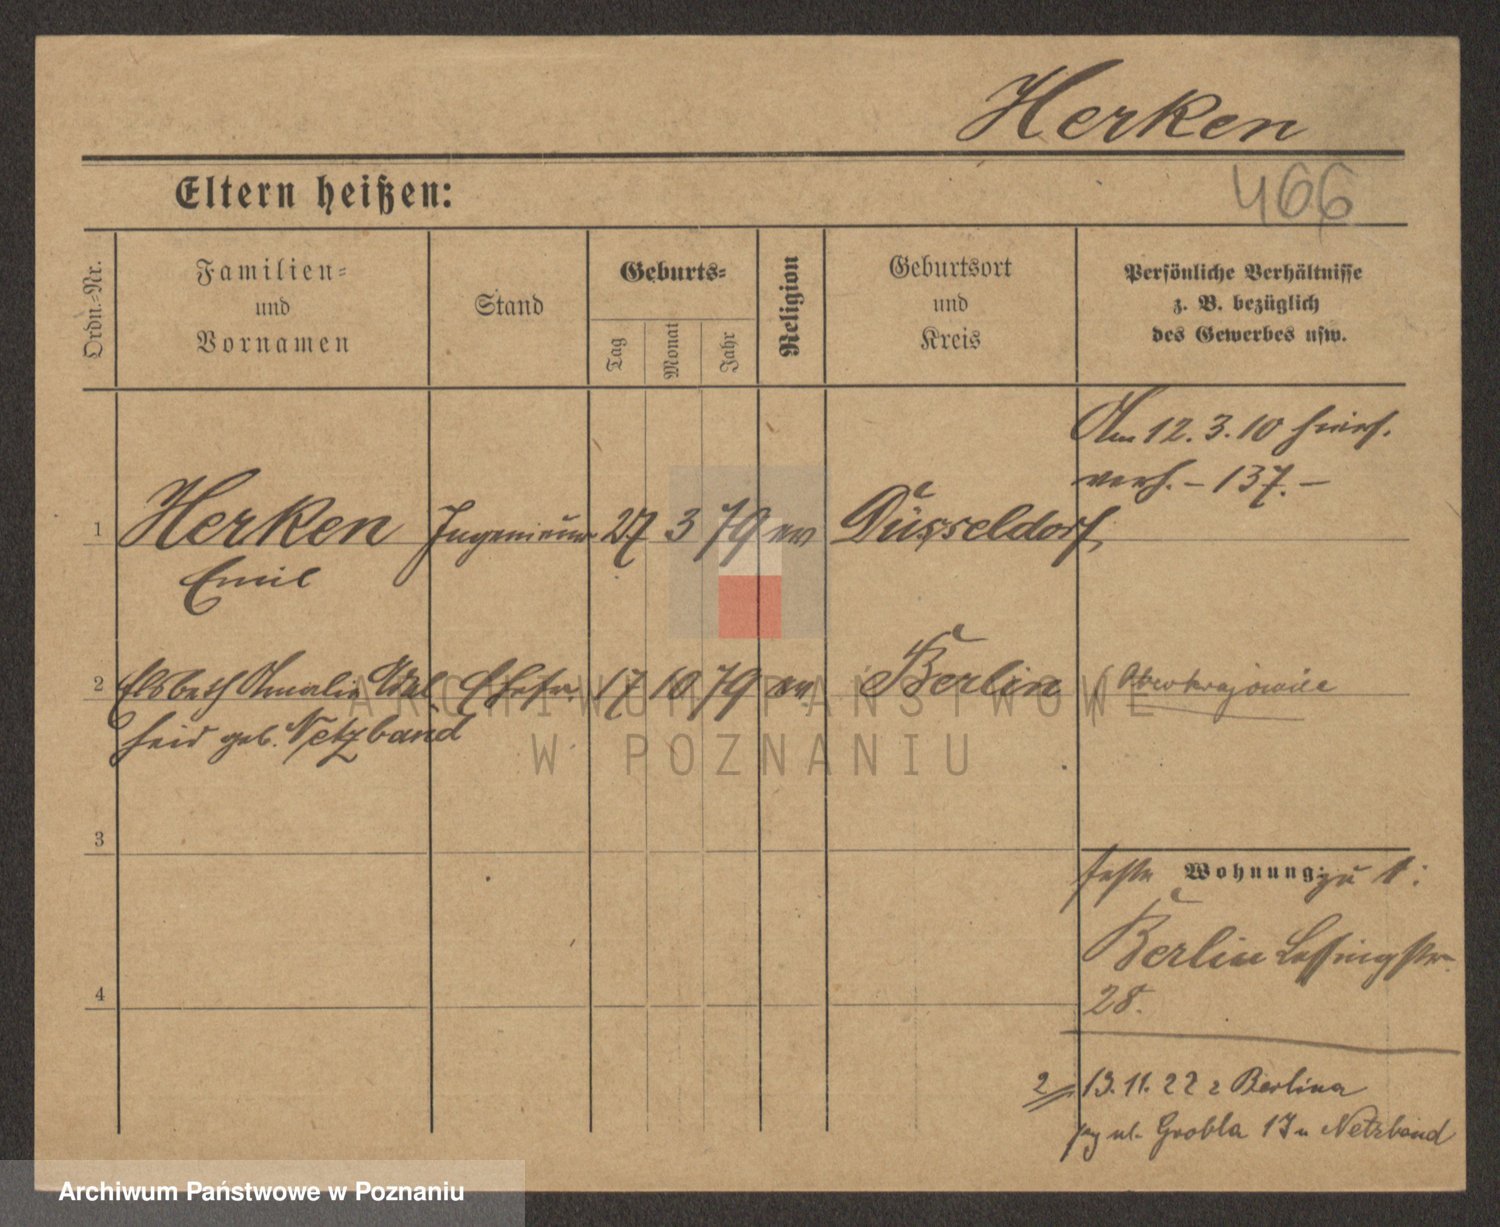 Herken
Eltern heißen:
466
Ordn.-Nr.
Familien-
und
Vornamen
Stand
Geburts-
Tag
Monat
Jahr
Religion
Geburtsort
und
Kreis
Persönliche Verhältnisse
z. B. bezüglich
des Gewerbes usw.
Am 12. 3. 10 hier
verh. – 137. –
1 Herken Ingenieur 27 3 79 ev Düsseldorf
Emil
2 Elsbeth Amalie Adel Ehefr. 17 10 79 ev. Berlin
heid geb. Netzband
3
feste Wohnung: zu 1:
Berlin Lessingstr.
28.
4
2 13.11.22 z Berlina
ul. Grobla 17 u Netzband
ARCHIWUM PAŃSTWOWE
W POZNANIU
Archiwum Państwowe w Poznaniu